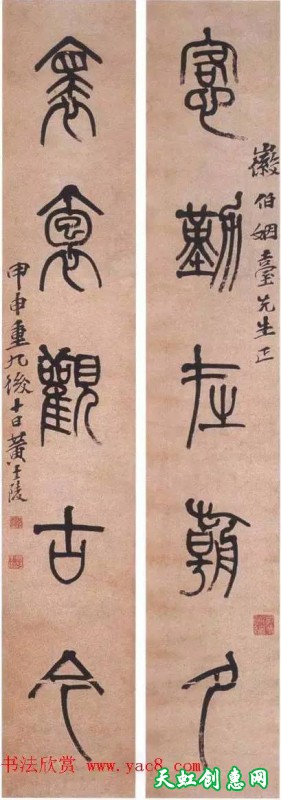 愙勤在朝夕
徽伯姻臺先生正
褱袌觀古今
甲申重九後十日黄士陵
书法欣赏 www.yac8.com
天虹创惠网